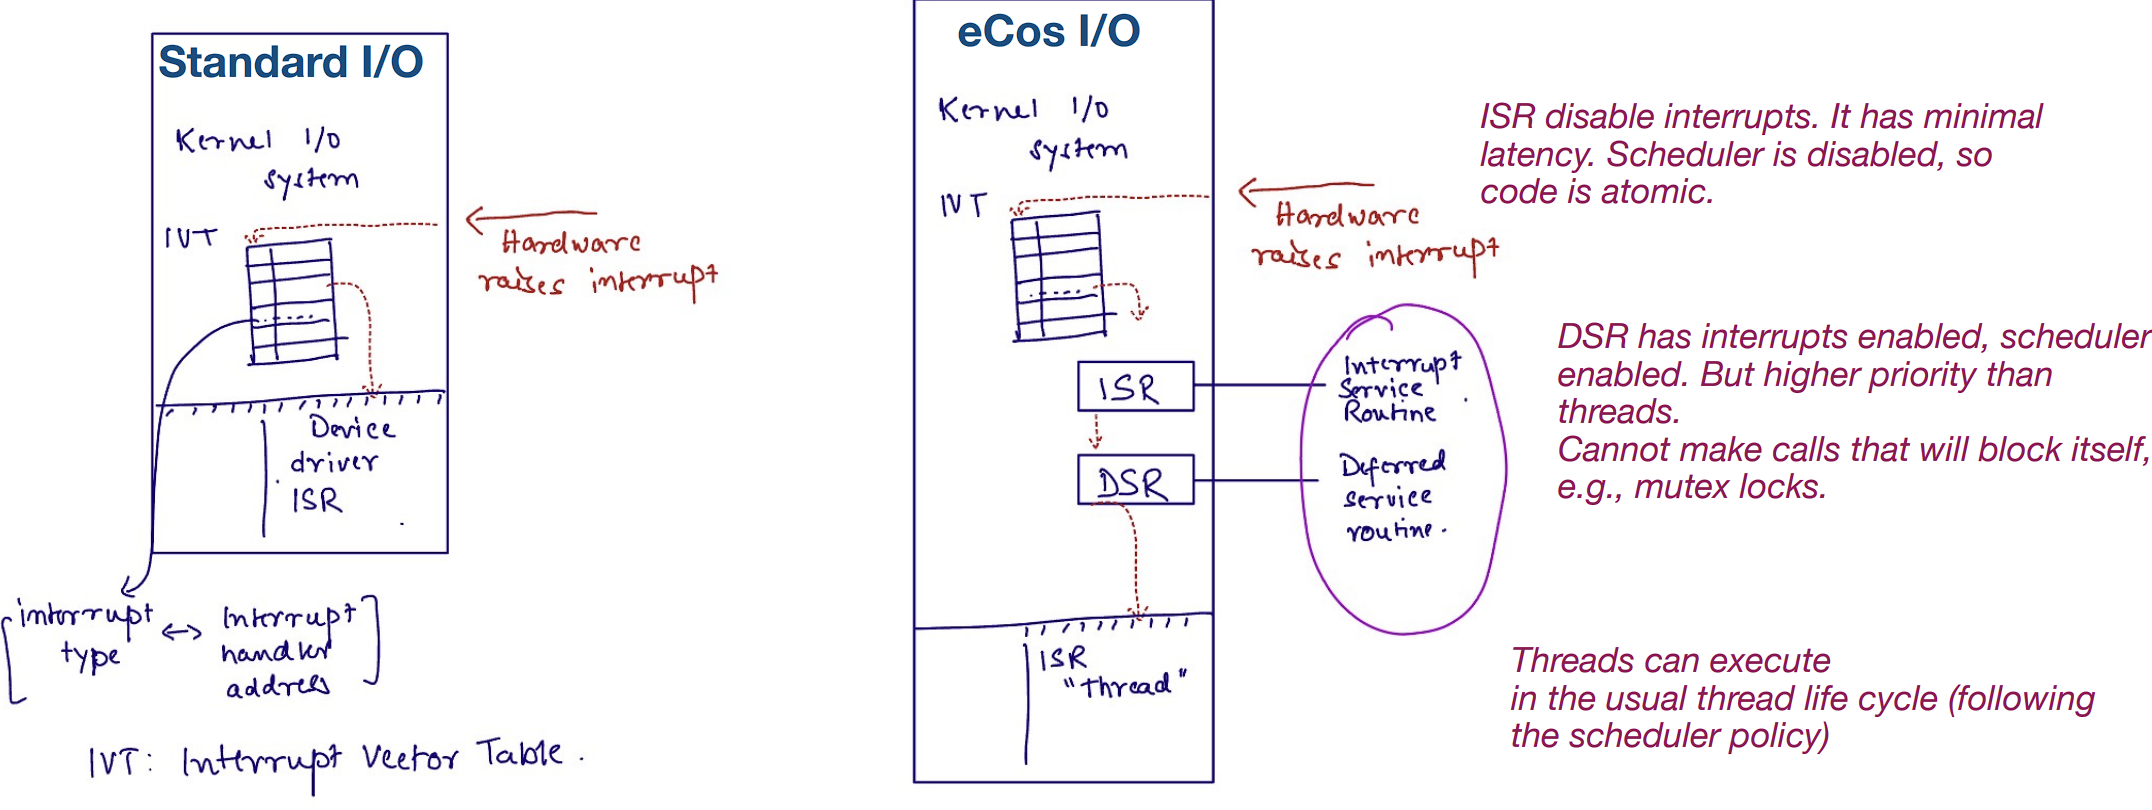 Standard I/O
Kernel I/O
system
IVT
Hardware
raises interrupt
Device
driver
ISR
interrupt
type
↔
Interrupt
handler
address
IVT: Interrupt Vector Table.
eCos I/O
Kernel I/O
system
IVT
Hardware
raises interrupt
ISR
DSR
Interrupt
Service
Routine.
Deferred
service
routine.
ISR
"thread"
ISR disable interrupts. It has minimal
latency. Scheduler is disabled, so
code is atomic.
DSR has interrupts enabled, scheduler
enabled. But higher priority than
threads.
Cannot make calls that will block itself,
e.g., mutex locks.
Threads can execute
in the usual thread life cycle (following
the scheduler policy)